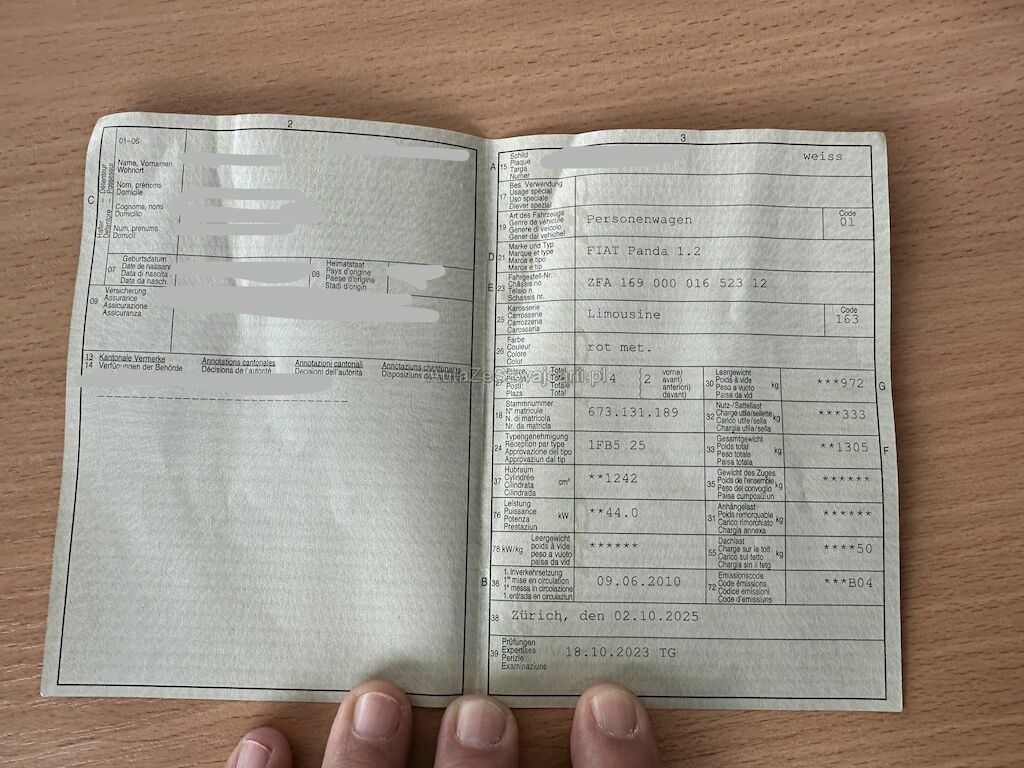 2
01–06
Halter – Détenteur
Detentore – Possessur
C
Name, Vornamen
Wohnort
Nom, prénoms
Domicile
Cognome, nomi
Domicilio
Num, prenums
Domicil
07
Geburtsdatum
Date de naissance
Data di nascita
Data da nasch.
08
Heimatstaat
Pays d'origine
Paese d'origine
Stadi d'origin
09
Versicherung
Assurance
Assicurazione
Assicuranza
13
14
Kantonale Vermerke
Verfügungen der Behörde
Annotations cantonales
Décisions de l'autorité
Annotazioni cantonali
Decisioni dell'autorità
Annotaziuns chantunalas
Dispositiuns da
3
A 15
Schild
Plaque
Targa
Numer
weiss
17
Bes. Verwendung
Usage spécial
Uso speciale
Diever spezial
19
Art des Fahrzeugs
Genre de véhicule
Genere di veicolo
Gener dal vehichel
Personenwagen
Code
01
D 21
Marke und Typ
Marque et type
Marca e tipo
Marca e tip
FIAT Panda 1.2
E 23
Fahrgestell-Nr.
Châssis no
Telaio n.
Schassis nr.
ZFA 169 000 016 523 12
25
Karosserie
Carrosserie
Carrozzeria
Carossaria
Limousine
Code
163
26
Farbe
Couleur
Colore
Colur
rot met.
27
Plätze:
Posti:
Plazs:
Total
Totale
Totale
Total
4
(2
vorne)
avant)
anteriori)
davant)
30
Leergewicht
Poids à vide
Peso a vuoto
Paisa da vid
kg
***972
G
AutaZeSzwajcarii.pl
18
Stammnummer
N° matricule
N. di matricola
Nr. da matricla
673.131.189
32
Nutz-/Sattellast
Charge utile/sellette
Carico utile/sella
Chargia utila/sella
kg
***333
24
Typengenehmigung
Réception par type
Approvazione del tipo
Approvaziun dal tip
1FB5 25
33
Gesamtgewicht
Poids total
Peso totale
Paisa totala
kg
**1305
F
37
Hubraum
Cylindrée
Cilindrata
Cilindrada
cm³
**1242
35
Gewicht des Zuges
Poids de l'ensemble
Peso del convoglio
Paisa cumposiziun
kg
******
76
Leistung
Puissance
Potenza
Prestaziun
kW
**44.0
31
Anhängelast
Poids remorquable
Carico rimorchiato
Chargia annexa
kg
******
78 kW/kg
Leergewicht
poids à vide
peso a vuoto
paisa da vid
******
55
Dachlast
Charge sur le toit
Carico sul tetto
Chargia sin il tetg
kg
****50
B 36
1. Inverkehrsetzung
1re mise en circulation
1a messa in circolazione
1. entrada en circulaziun
09.06.2010
72
Emissionscode
Code émissions
Codice emissioni
Code d'emissiuns
***B04
38
Zürich, den 02.10.2025
39
Prüfungen
Expertises
Perizie
Examinaziuns
18.10.2023 TG